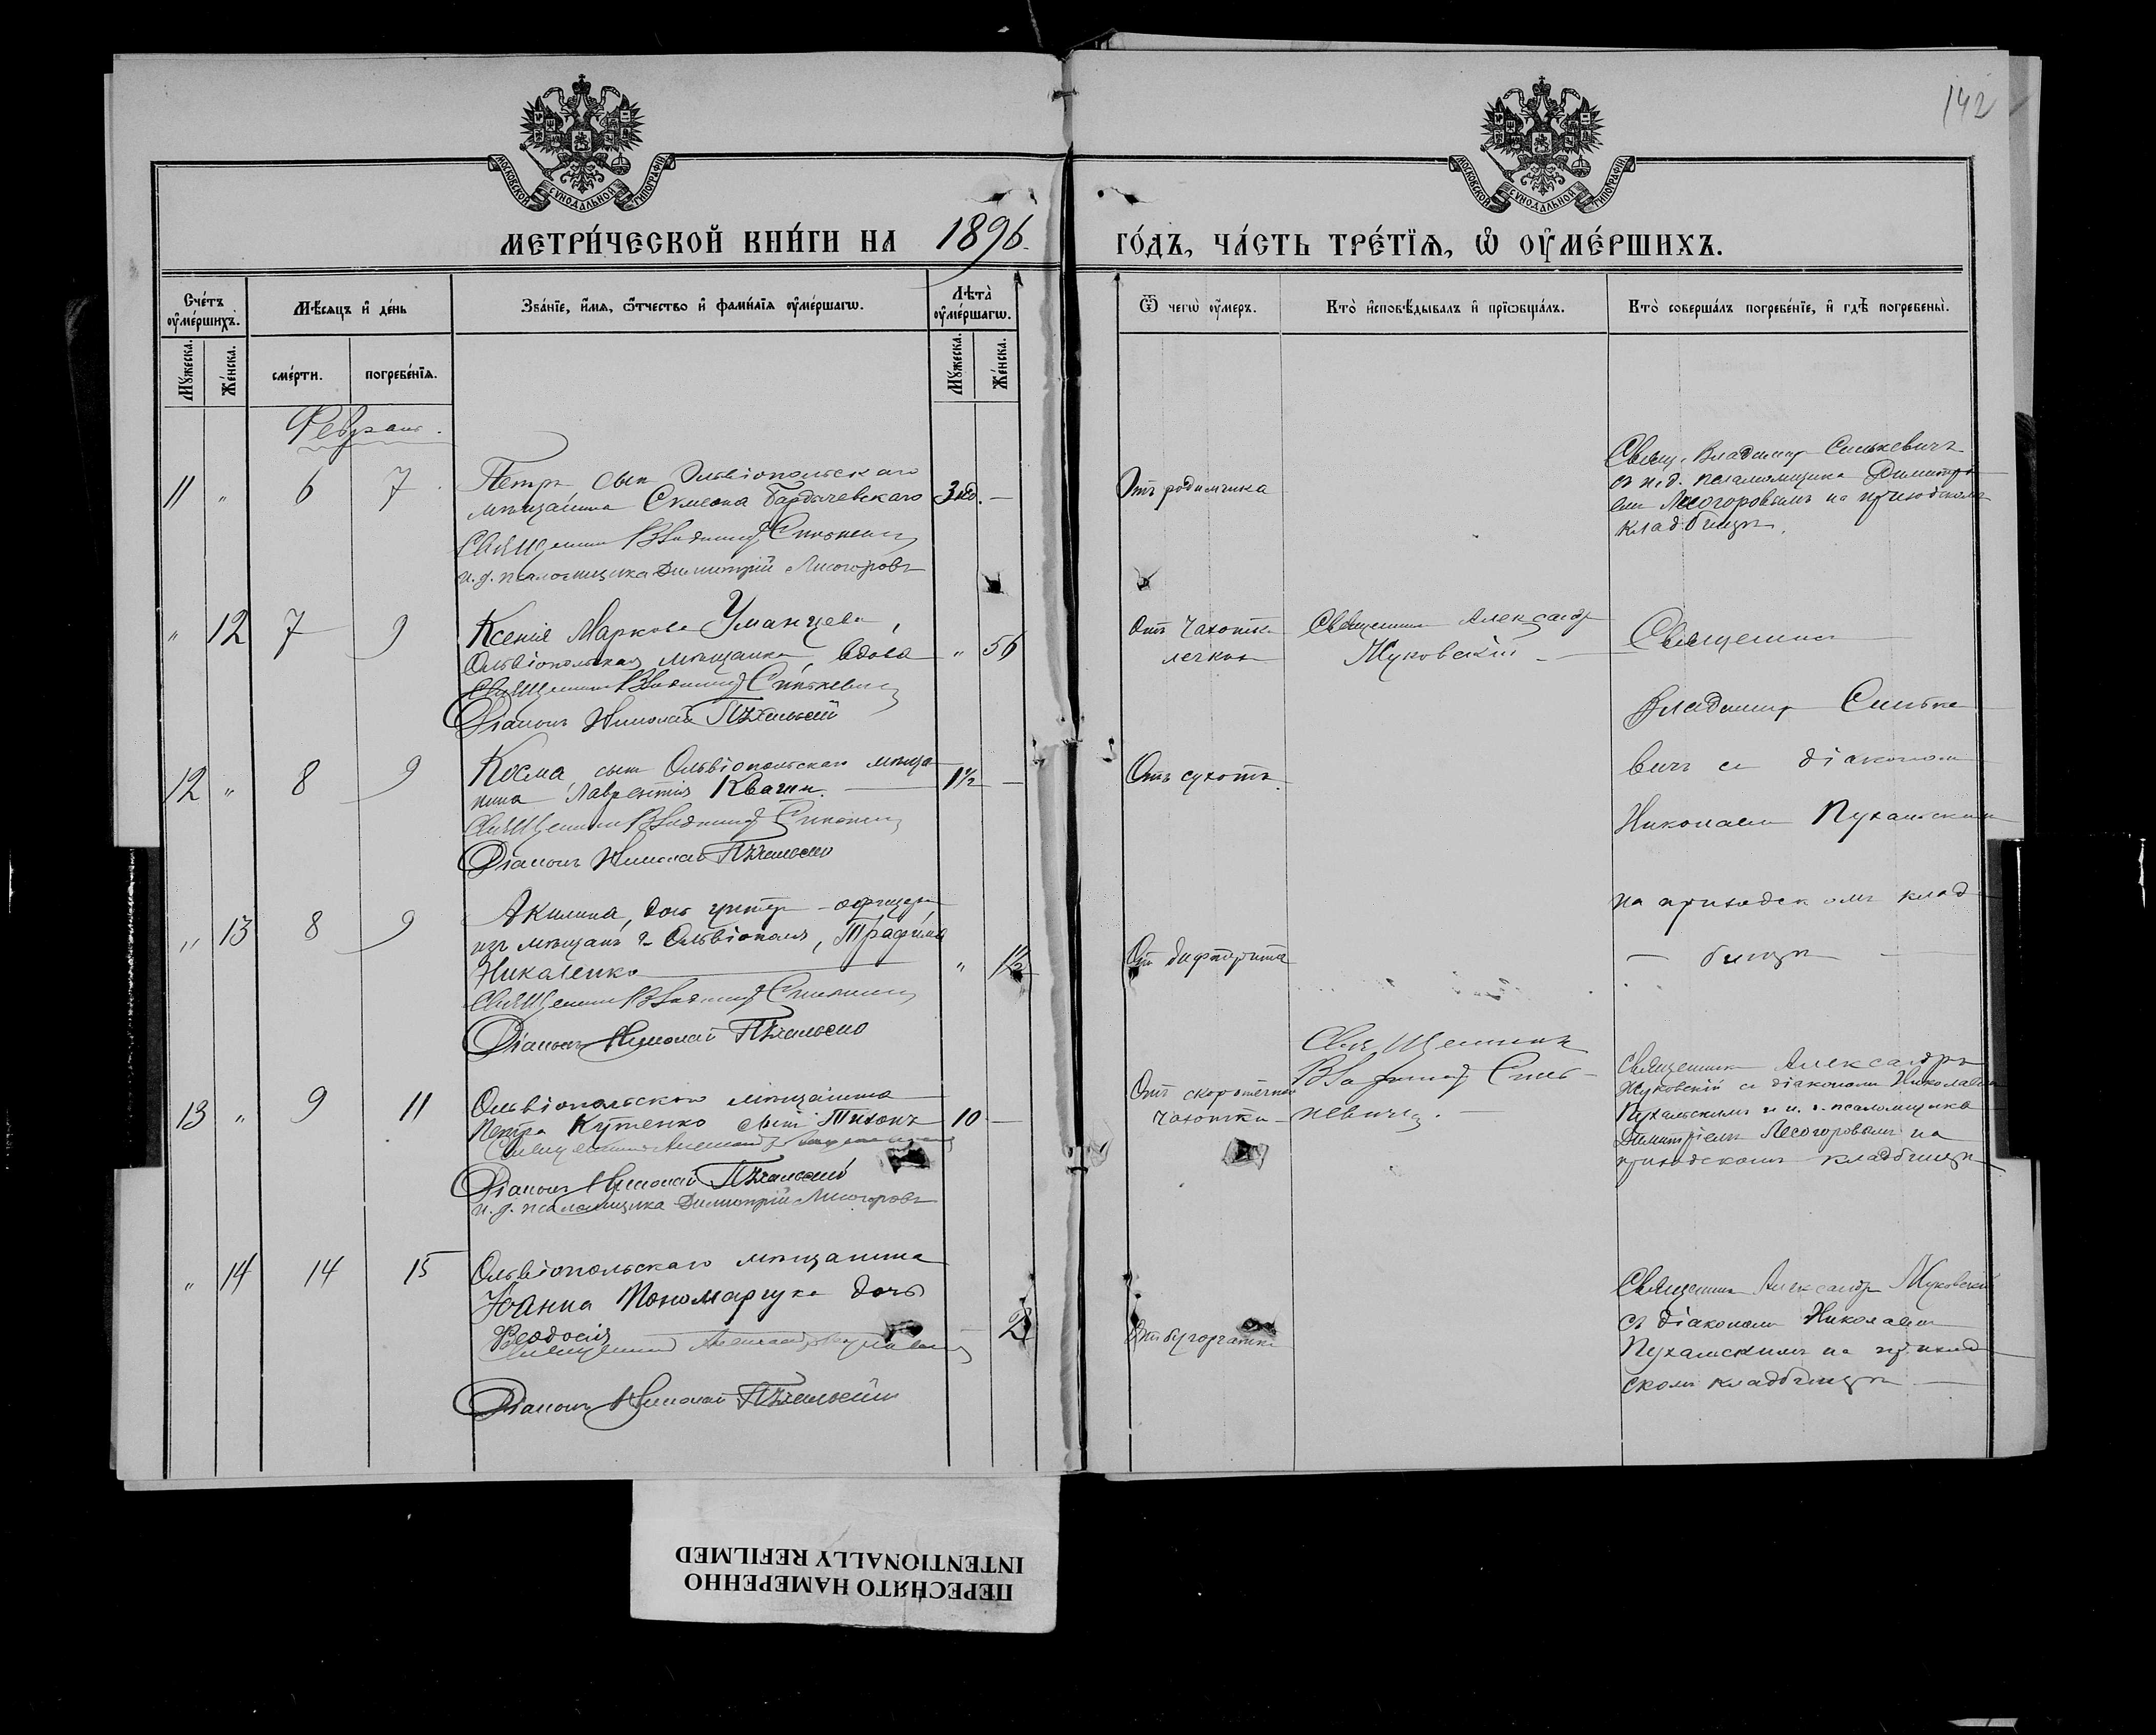 142
МОСКОВСКОЙ СѴНОДАЛЬНОЙ ТИПОГРАФІИ
МОСКОВСКОЙ СѴНОДАЛЬНОЙ ТИПОГРАФІИ
МЕТРИ́ЧЕСКОЙ КНИ́ГИ НА 1896.
ГО́ДЪ, ЧА́СТЬ ТРЕ́ТЇѦ, Ѡ҆ ОУ҆МЕ́РШИХЪ.
Сче́тъ оу҆ме́ршихъ.
Мѣ́сяцъ и҆ де́нь
Зва́нїе, и҆́мя, ѻ҆́тчество и҆ фами́лїя оу҆ме́ршагѡ.
Лѣта̀ оу҆ме́ршагѡ.
Ѿ чегѡ̀ оу҆́меръ.
Кто̀ и҆сповѣ́дывалъ и҆ прїѡбща́лъ.
Кто̀ соверша́лъ погребе́нїе, и҆ гдѣ̀ погребены̀.
Мꙋ́жеска.
Же́нска.
сме́рти.
погребе́нїя.
Мꙋ́жеска.
Же́нска.
Февраль.
11 " 6 7
Петръ сын Ольвіопольскаго
мѣщанина Симеона Бардычевскаго
3 нед. —
Священникъ Владимиръ Синькевичъ
и. д. псаломщика Димитрій Лисогоровъ
Отъ родимчика
Свящ. Владимир Синькевичъ
съ и. д. псаломщика Димитрі
ем Лисогоровымъ на приходском
кладбищѣ.
" 12 7 9
Ксенія Маркова Уманцева,
Ольвіопольская мѣщанка, вдова
" 56
Священникъ Владимиръ Синькевичъ
Діаконъ Николай Пухальскій
Отъ чахотки
легких
Священник Александр
Жуковскій —
Священник
Владимир Синьке
вичъ съ діаконом
Николаем Пухальским
на приходскомъ клад
— бищѣ —
12 " 8 9
Косма, сын Ольвіопольскаго мѣща
нина Лаврентія Квачин.
1½ —
Священникъ Владимиръ Синькевичъ
Діаконъ Николай Пухальскій
Отъ сухотъ.
" 13 8 9
Акилина, дочь унтер-офицера
изъ мѣщанъ г. Ольвіополя, Трафима
Никаленко
" 1½
Священникъ Владимиръ Синькевичъ
Діаконъ Николай Пухальскій
От дифтерита
13 " 9 11
Ольвіопольскаго мѣщанина
Петра Кутенко сынъ Тихонъ
10 —
Священникъ Александръ
Діаконъ Николай Пухальскій
и. д. псаломщика Димитрій Лисогоровъ
Отъ скоротечной
чахотки
Священник
Владимиръ Синь-
кевичъ. —
Священник Александръ
Жуковскій съ діаконом Николаем
Пухальскимъ и и. д. псаломщика
Димитріемъ Лесогоровымъ на
приходскомъ кладбищѣ
" 14 14 15
Ольвіопольскаго мѣщанина
Іоанна Пономарчука дочь
Феодосія
2
Священникъ Александръ Жуковскій
Діаконъ Николай Пухальскій
От бугорчатки
Священник Александръ Жуковскій
съ діаконом Николаем
Пухальскимъ на приход
ском кладбищѣ —
ПЕРЕСНЯТО НАМЕРЕННО
INTENTIONALLY REFILMED